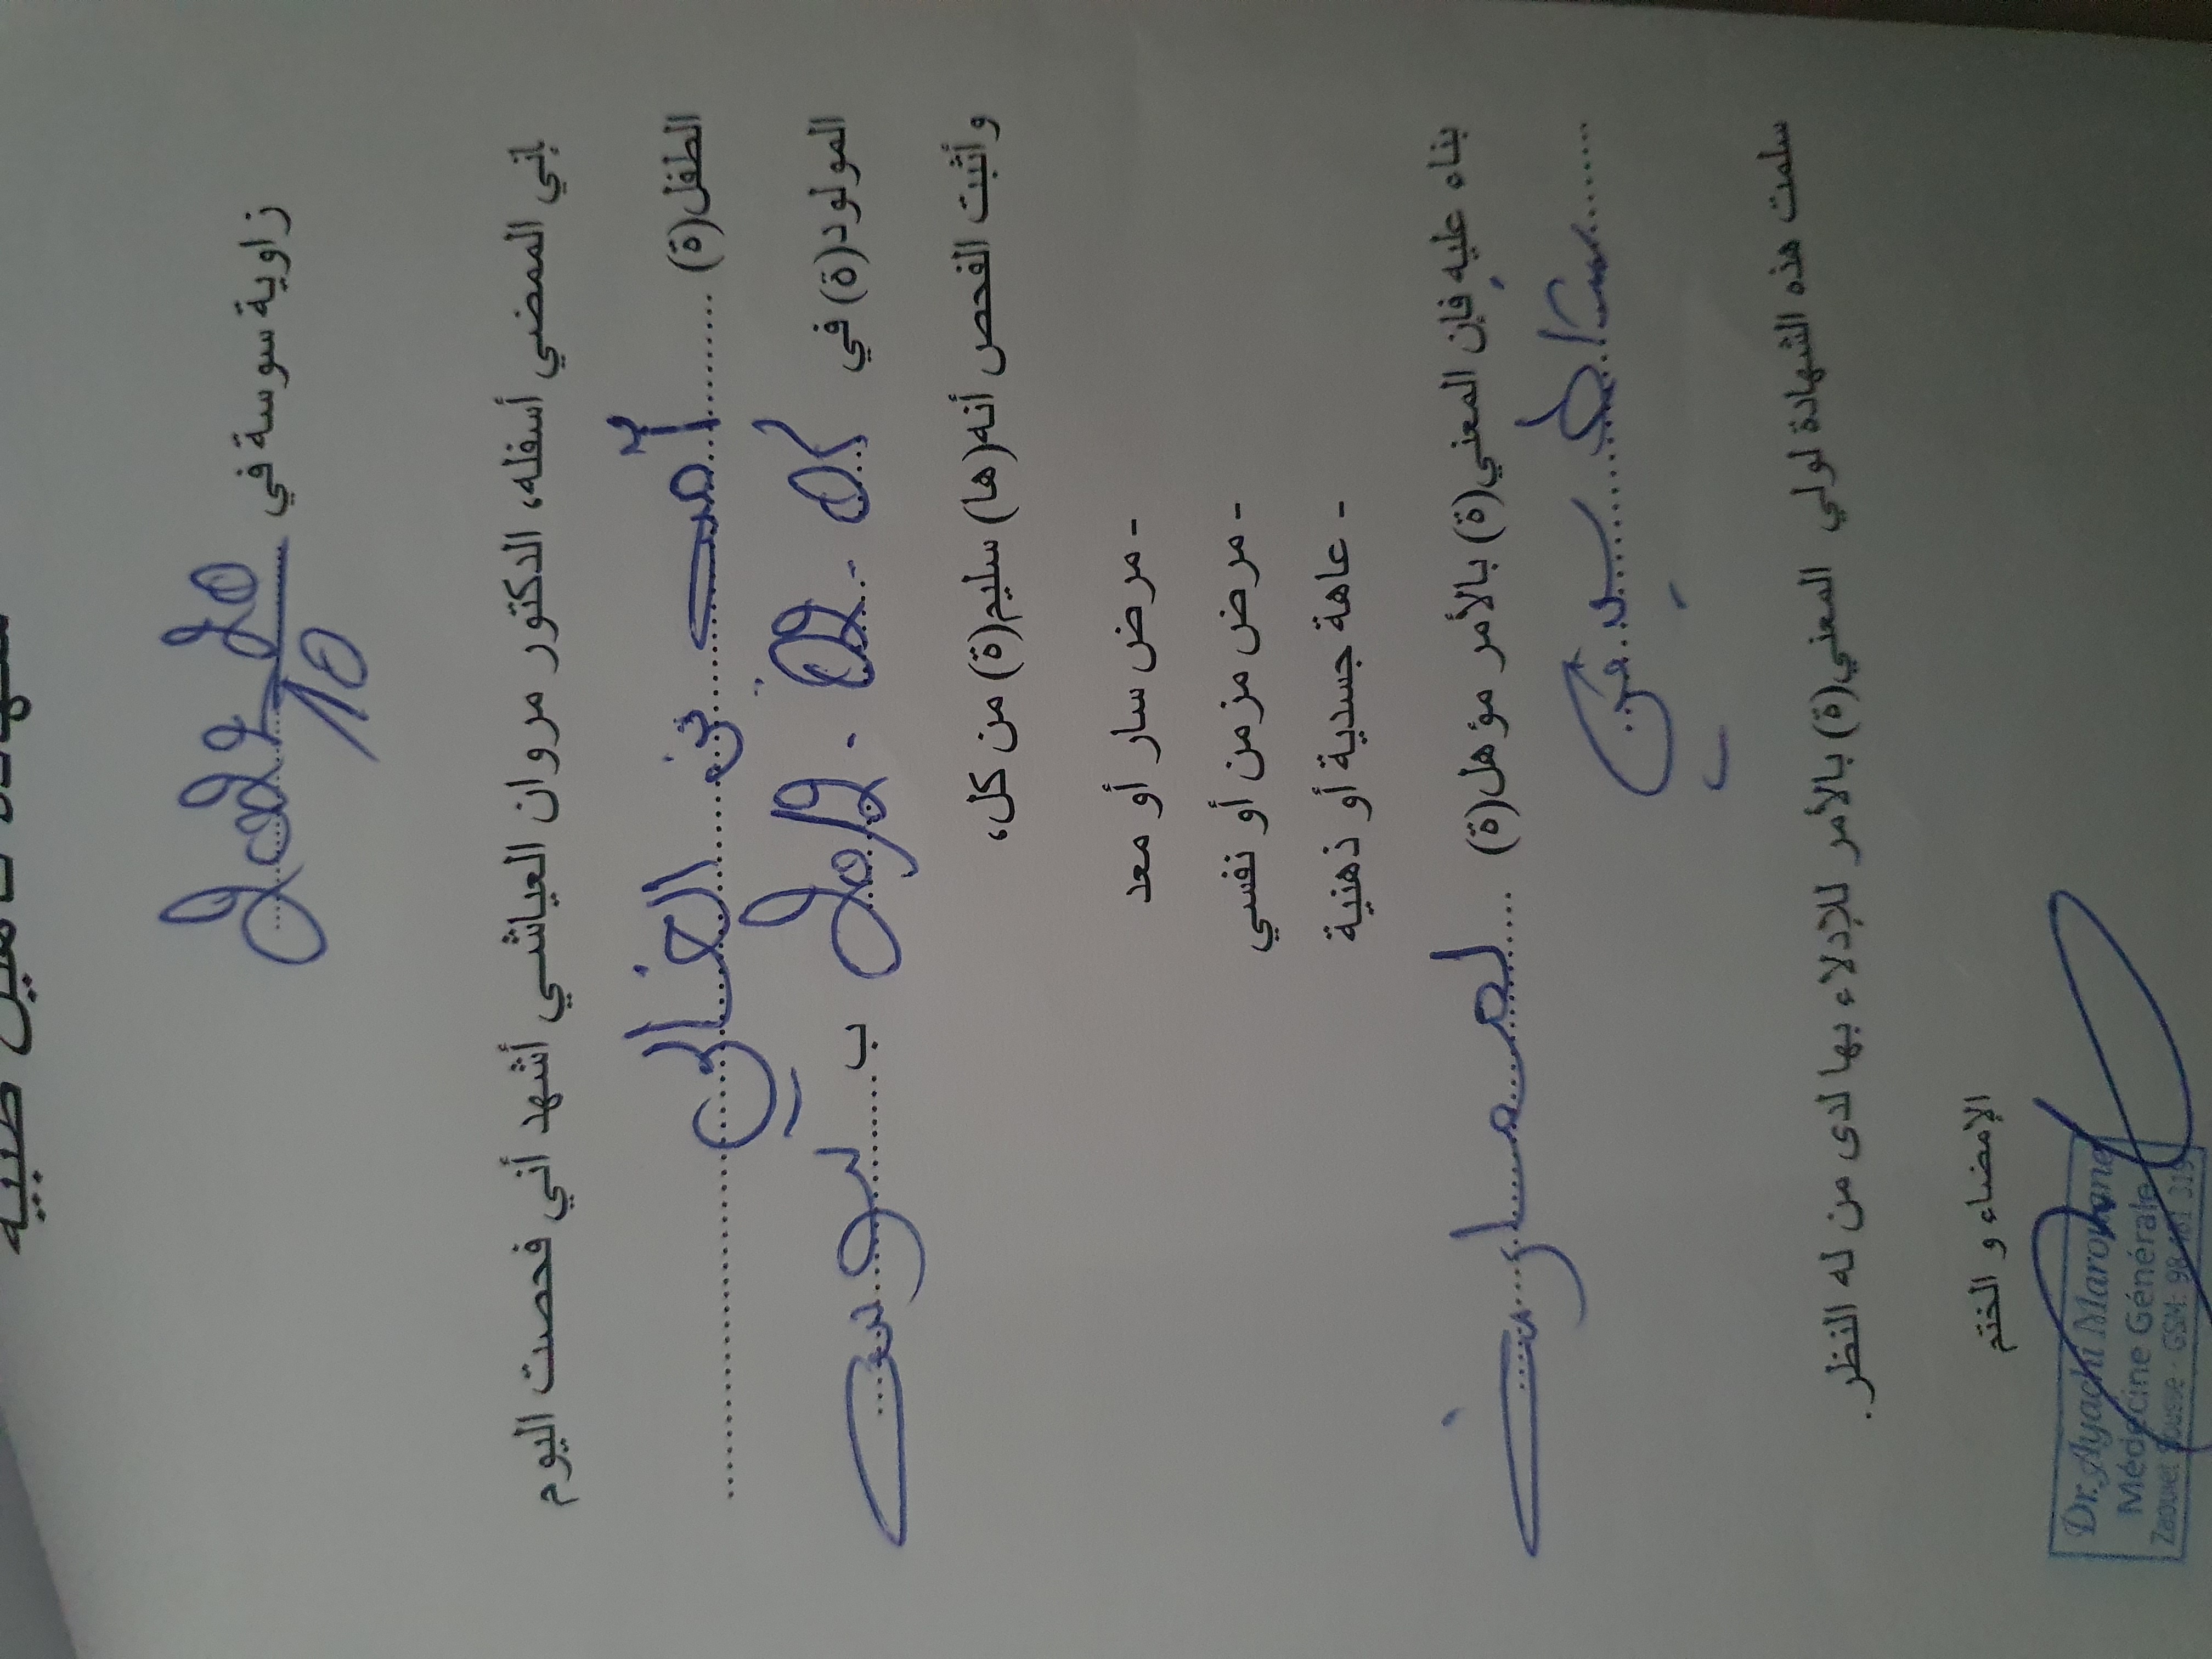 شهادة تأهيل طبية
زاوية سوسة في 20 10 2022
إني الممضي أسفله، الدكتور مروان العياشي أشهد أني فحصت اليوم
الطفل(ة) بن الغالي
المولود(ة) في ب سوسة
و أثبت الفحص أنه(ها) سليم(ة) من كل،
- مرض سار أو معد
- مرض مزمن أو نفسي
- عاهة جسدية أو ذهنية
بناء عليه فإن المعني(ة) بالأمر مؤهل(ة) لممارسة
سلمت هذه الشهادة لولي المعني(ة) بالأمر للإدلاء بها لدى من له النظر.
الإمضاء و الختم
Dr. Ayachi Marouane
Médecine Générale
Zaouiet Sousse - GSM: